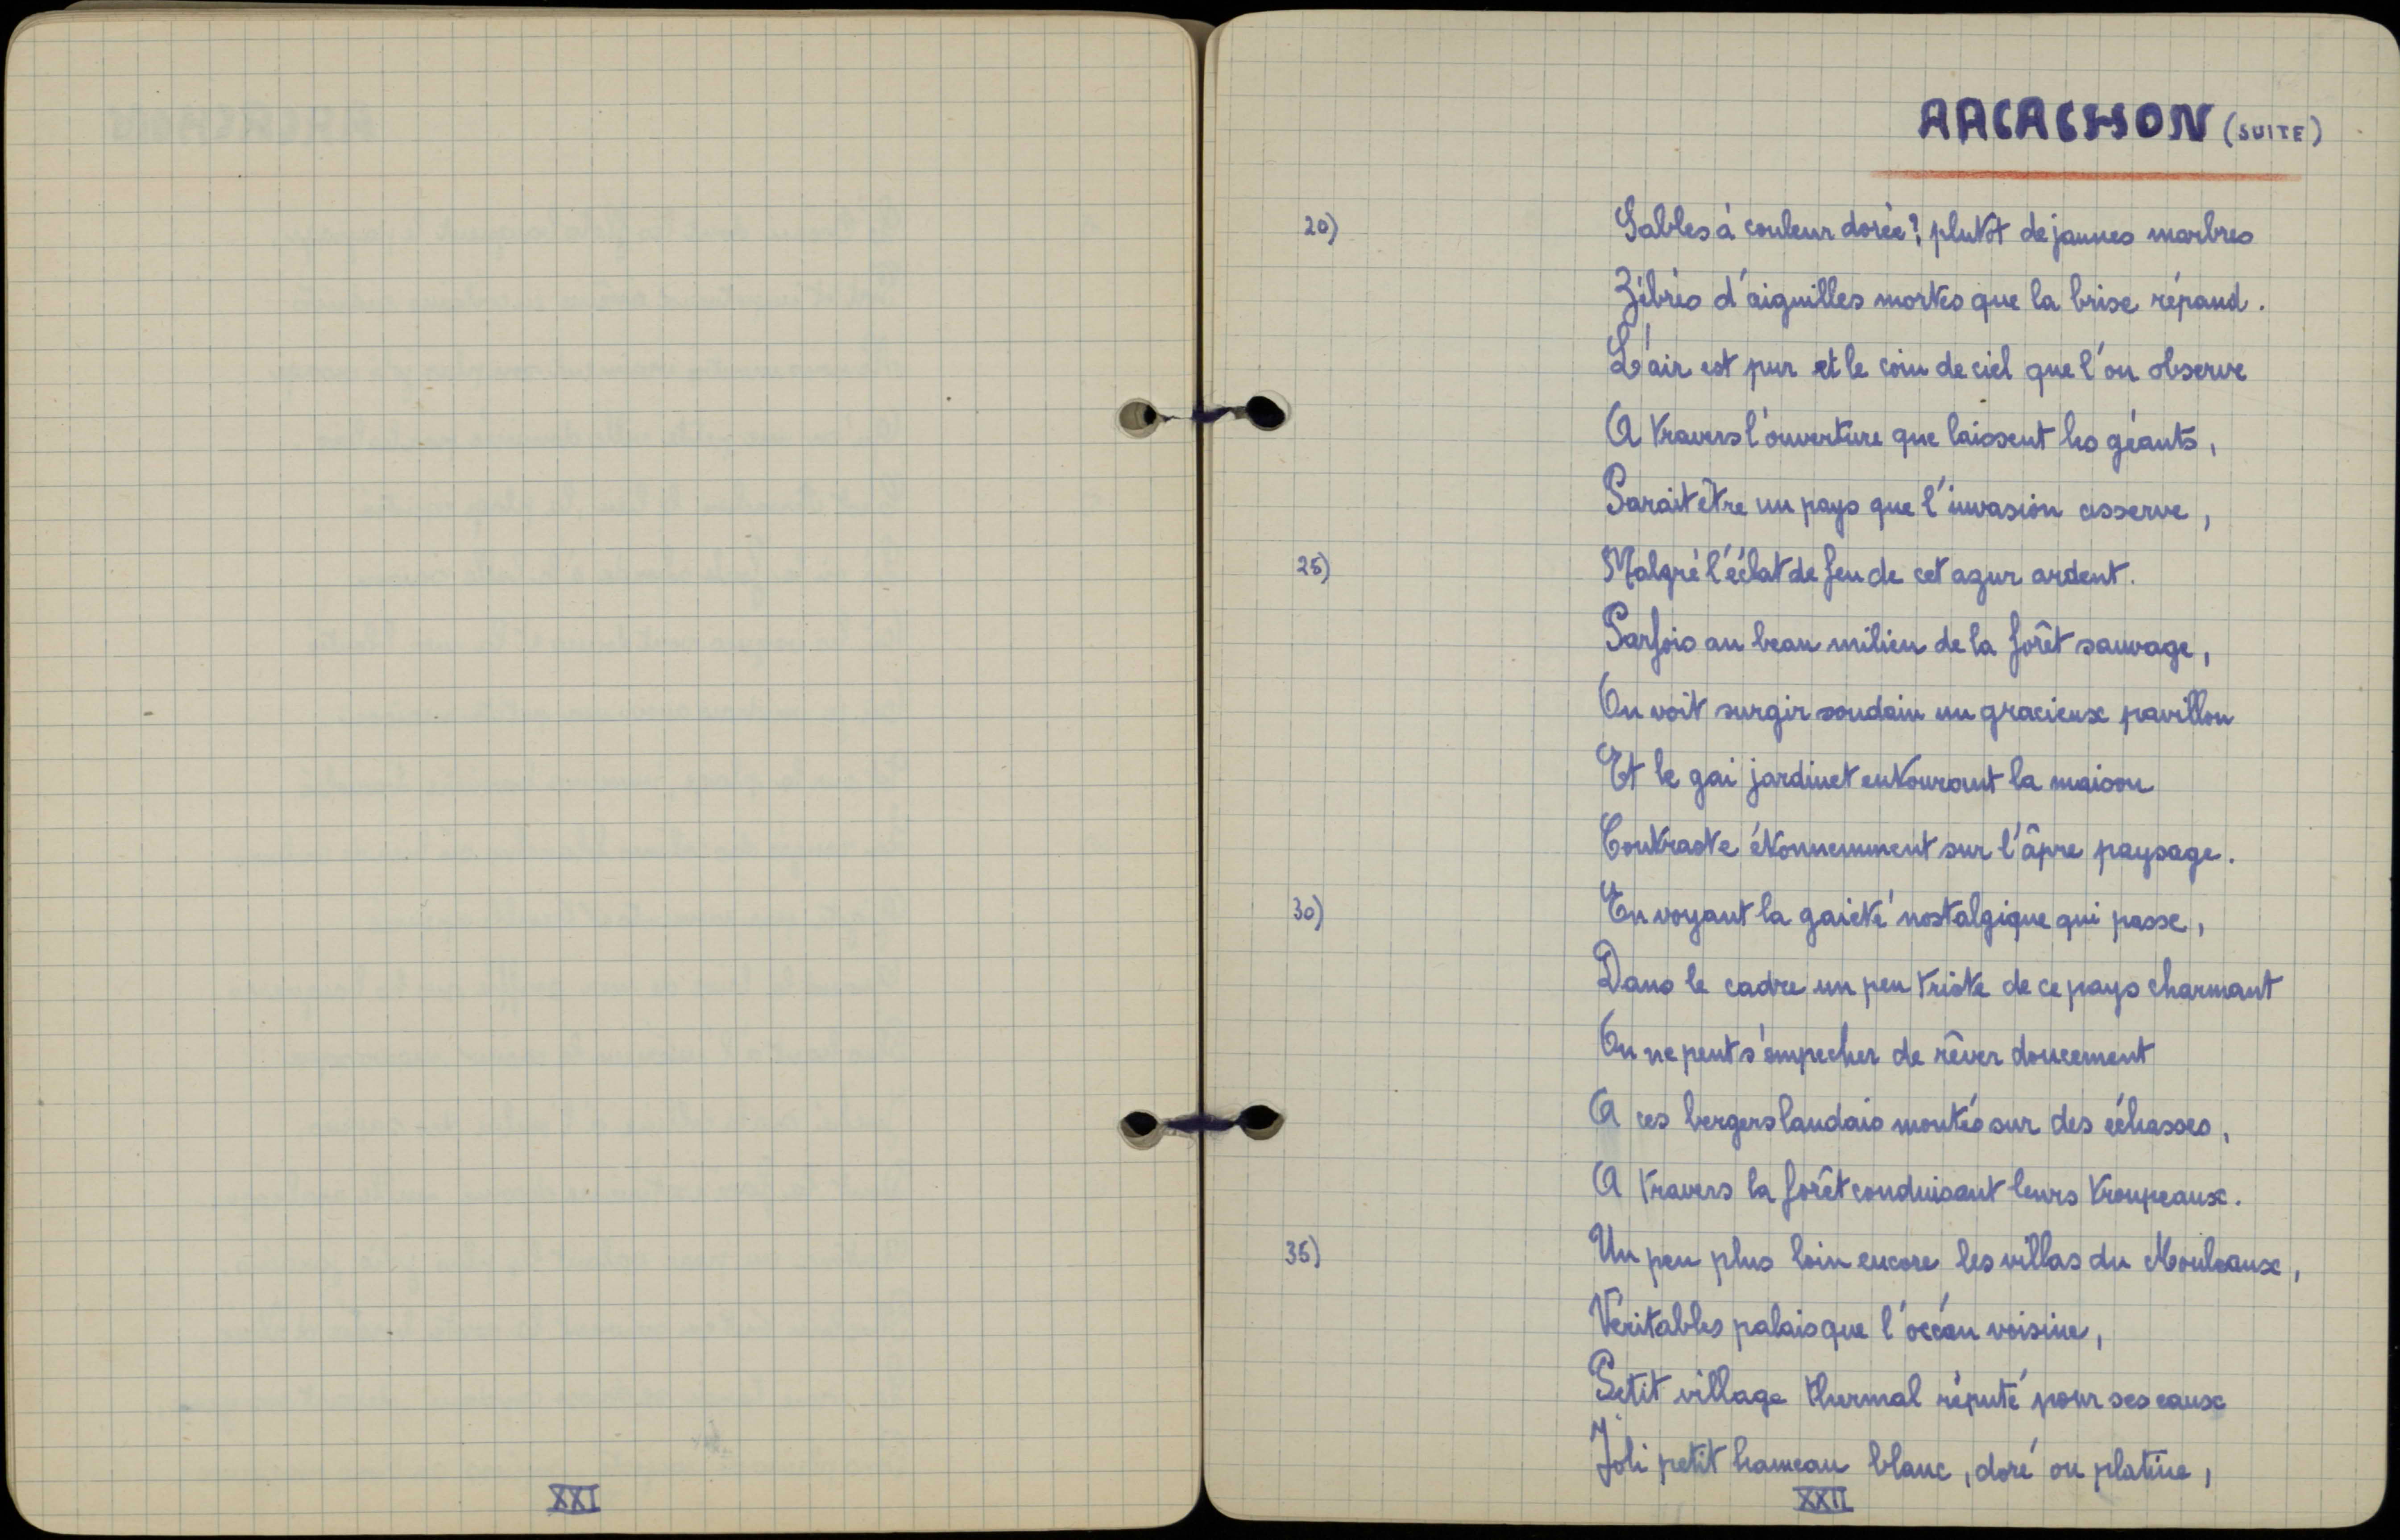 XXI
ARCACHON (SUITE)
20) Sables à couleur dorée? plutôt de jaunes marbres
Zébrés d'aiguilles mortes que la brise répand.
L'air est pur et le coin de ciel que l'on observe
A travers l'ouverture que laissent les géants,
Parait être un pays que l'invasion asserve,
25) Malgré l'éclat de feu de cet azur ardent.
Parfois au beau milieu de la forêt sauvage,
On voit surgir soudain un gracieux pavillon
Et le gai jardinet entourant la maison
Contraste étonnemment sur l'âpre paysage.
30) En voyant la gaieté nostalgique qui passe,
Dans le cadre un peu triste de ce pays charmant
On ne peut s'empecher de rêver doucement
A ces bergers landais montés sur des échasses,
A travers la forêt conduisant leurs troupeaux.
35) Un peu plus loin encore les villas du Mouleaux,
Véritables palais que l'océan voisine,
Petit village thermal réputé pour ses eaux
Joli petit hameau blanc, doré ou platine,
XXII